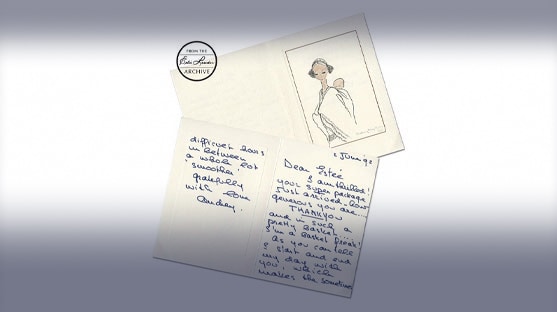 FROM THE
Estée Lauder
ARCHIVE
2 June 92
Dear Estée
I am thrilled!
your super package
just arrived - how
generous you are...
THANKYOU
and in such a
pretty basket...
I'm a basket freak!
As you can tell
I start and end
my day with
you, which
makes the sometimes
difficult hours
in between
a whole lot
'smoother'
gratefully
with love
Audrey.